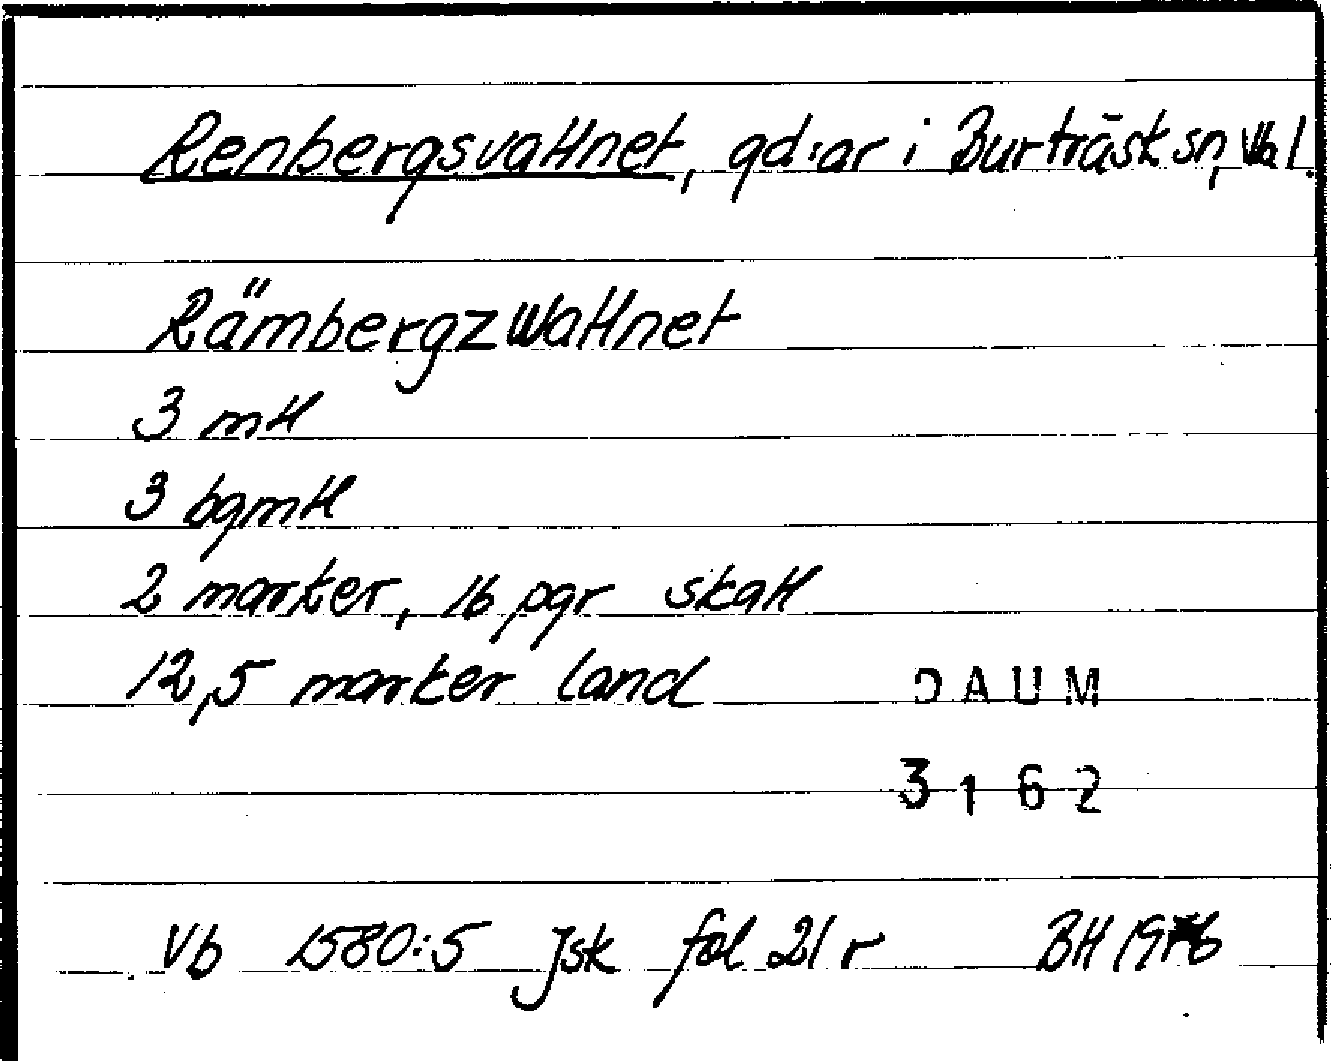 Renbergsvattnet, gd:ar i Burträsk sn, Vb l.
Rämbergzwattnet
3 mtl
3 bgmtl
2 marker, 16 pgr skatt
12,5 marker land
DAUM
3162
Vb 1580:5 Jsk fol 21 r BH 1976